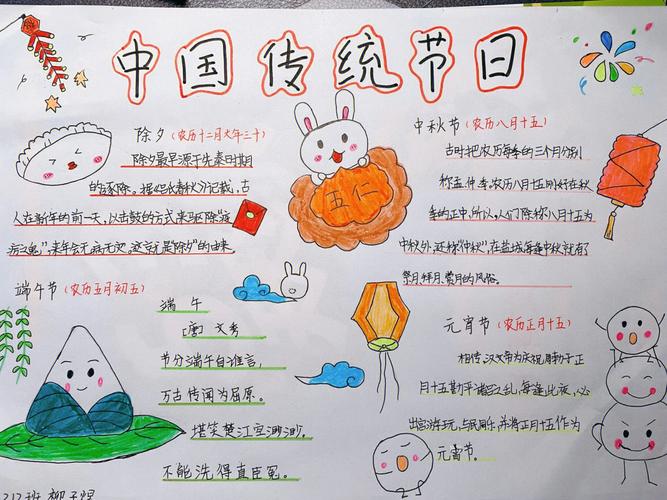 中国传统节日
除夕(农历十二月大年三十)
除夕最早源于先秦时期
的逐除。据《吕氏春秋》记载,古
人在新年的前一天,以击鼓的方式来驱除"疫
疠之鬼",来年会无病无灾。这就是除夕"的由来。
五仁
中秋节(农历八月十五)
古时把农历每季的三个月分别
称孟、仲、季,农历八月十五刚好在秋
季的正中,所以,人们除称八月十五为
中秋外,还称"仲秋",在盐城每逢中秋就有
祭月、拜月、赏月的风俗。
端午节(农历五月初五)
端 午
[唐] 文秀
节分端午自谁言,
万古传闻为屈原。
堪笑楚江空渺渺,
不能洗得直臣冤。
元宵节(农历正月十五)
相传,汉文帝为庆祝勃于正
月十五勘平诸吕之乱,每逢此夜,必
出宫游玩,与民同乐,并将正月十五作为
元宵节。
212班 柳子煜